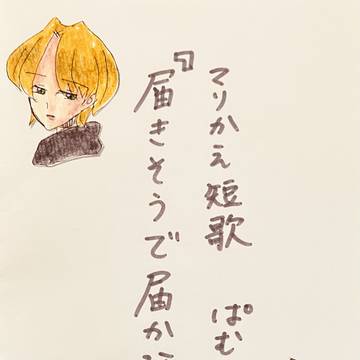 マリかえ短歌 ぱむ
『届きそうで届か